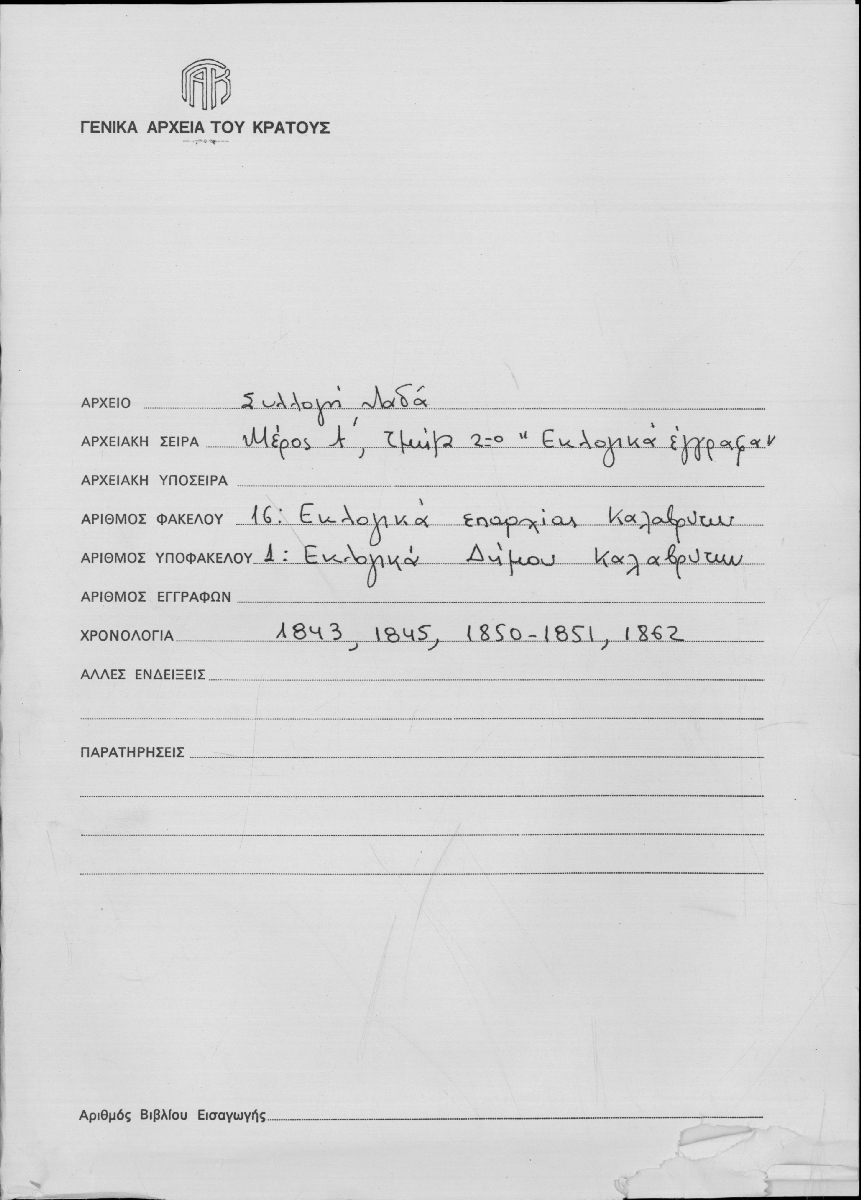 ΓΑΚ
ΓΕΝΙΚΑ ΑΡΧΕΙΑ ΤΟΥ ΚΡΑΤΟΥΣ
ΑΡΧΕΙΟ Συλλογή Λαδά
ΑΡΧΕΙΑΚΗ ΣΕΙΡΑ Μέρος Α', Τμήμα 2-0 " Εκλογικά έγγραφα"
ΑΡΧΕΙΑΚΗ ΥΠΟΣΕΙΡΑ
ΑΡΙΘΜΟΣ ΦΑΚΕΛΟΥ 16: Εκλογικά επαρχίας Καλαβρύτων
ΑΡΙΘΜΟΣ ΥΠΟΦΑΚΕΛΟΥ 1: Εκλογικά Δήμου Καλαβρύτων
ΑΡΙΘΜΟΣ ΕΓΓΡΑΦΩΝ
ΧΡΟΝΟΛΟΓΙΑ 1843, 1845, 1850-1851, 1862
ΑΛΛΕΣ ΕΝΔΕΙΞΕΙΣ
ΠΑΡΑΤΗΡΗΣΕΙΣ
Αριθμός Βιβλίου Εισαγωγής